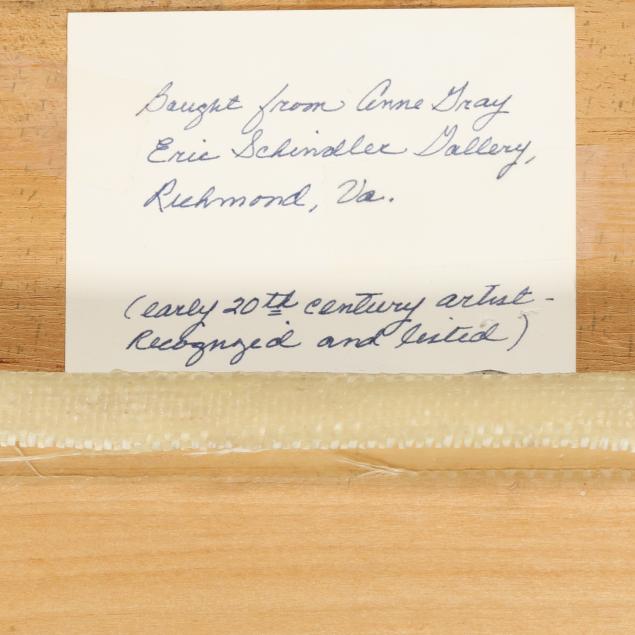 Bought from Anne Gray
Eric Schindler Gallery,
Richmond, Va.
(early 20th century artist -
Recognized and listed)